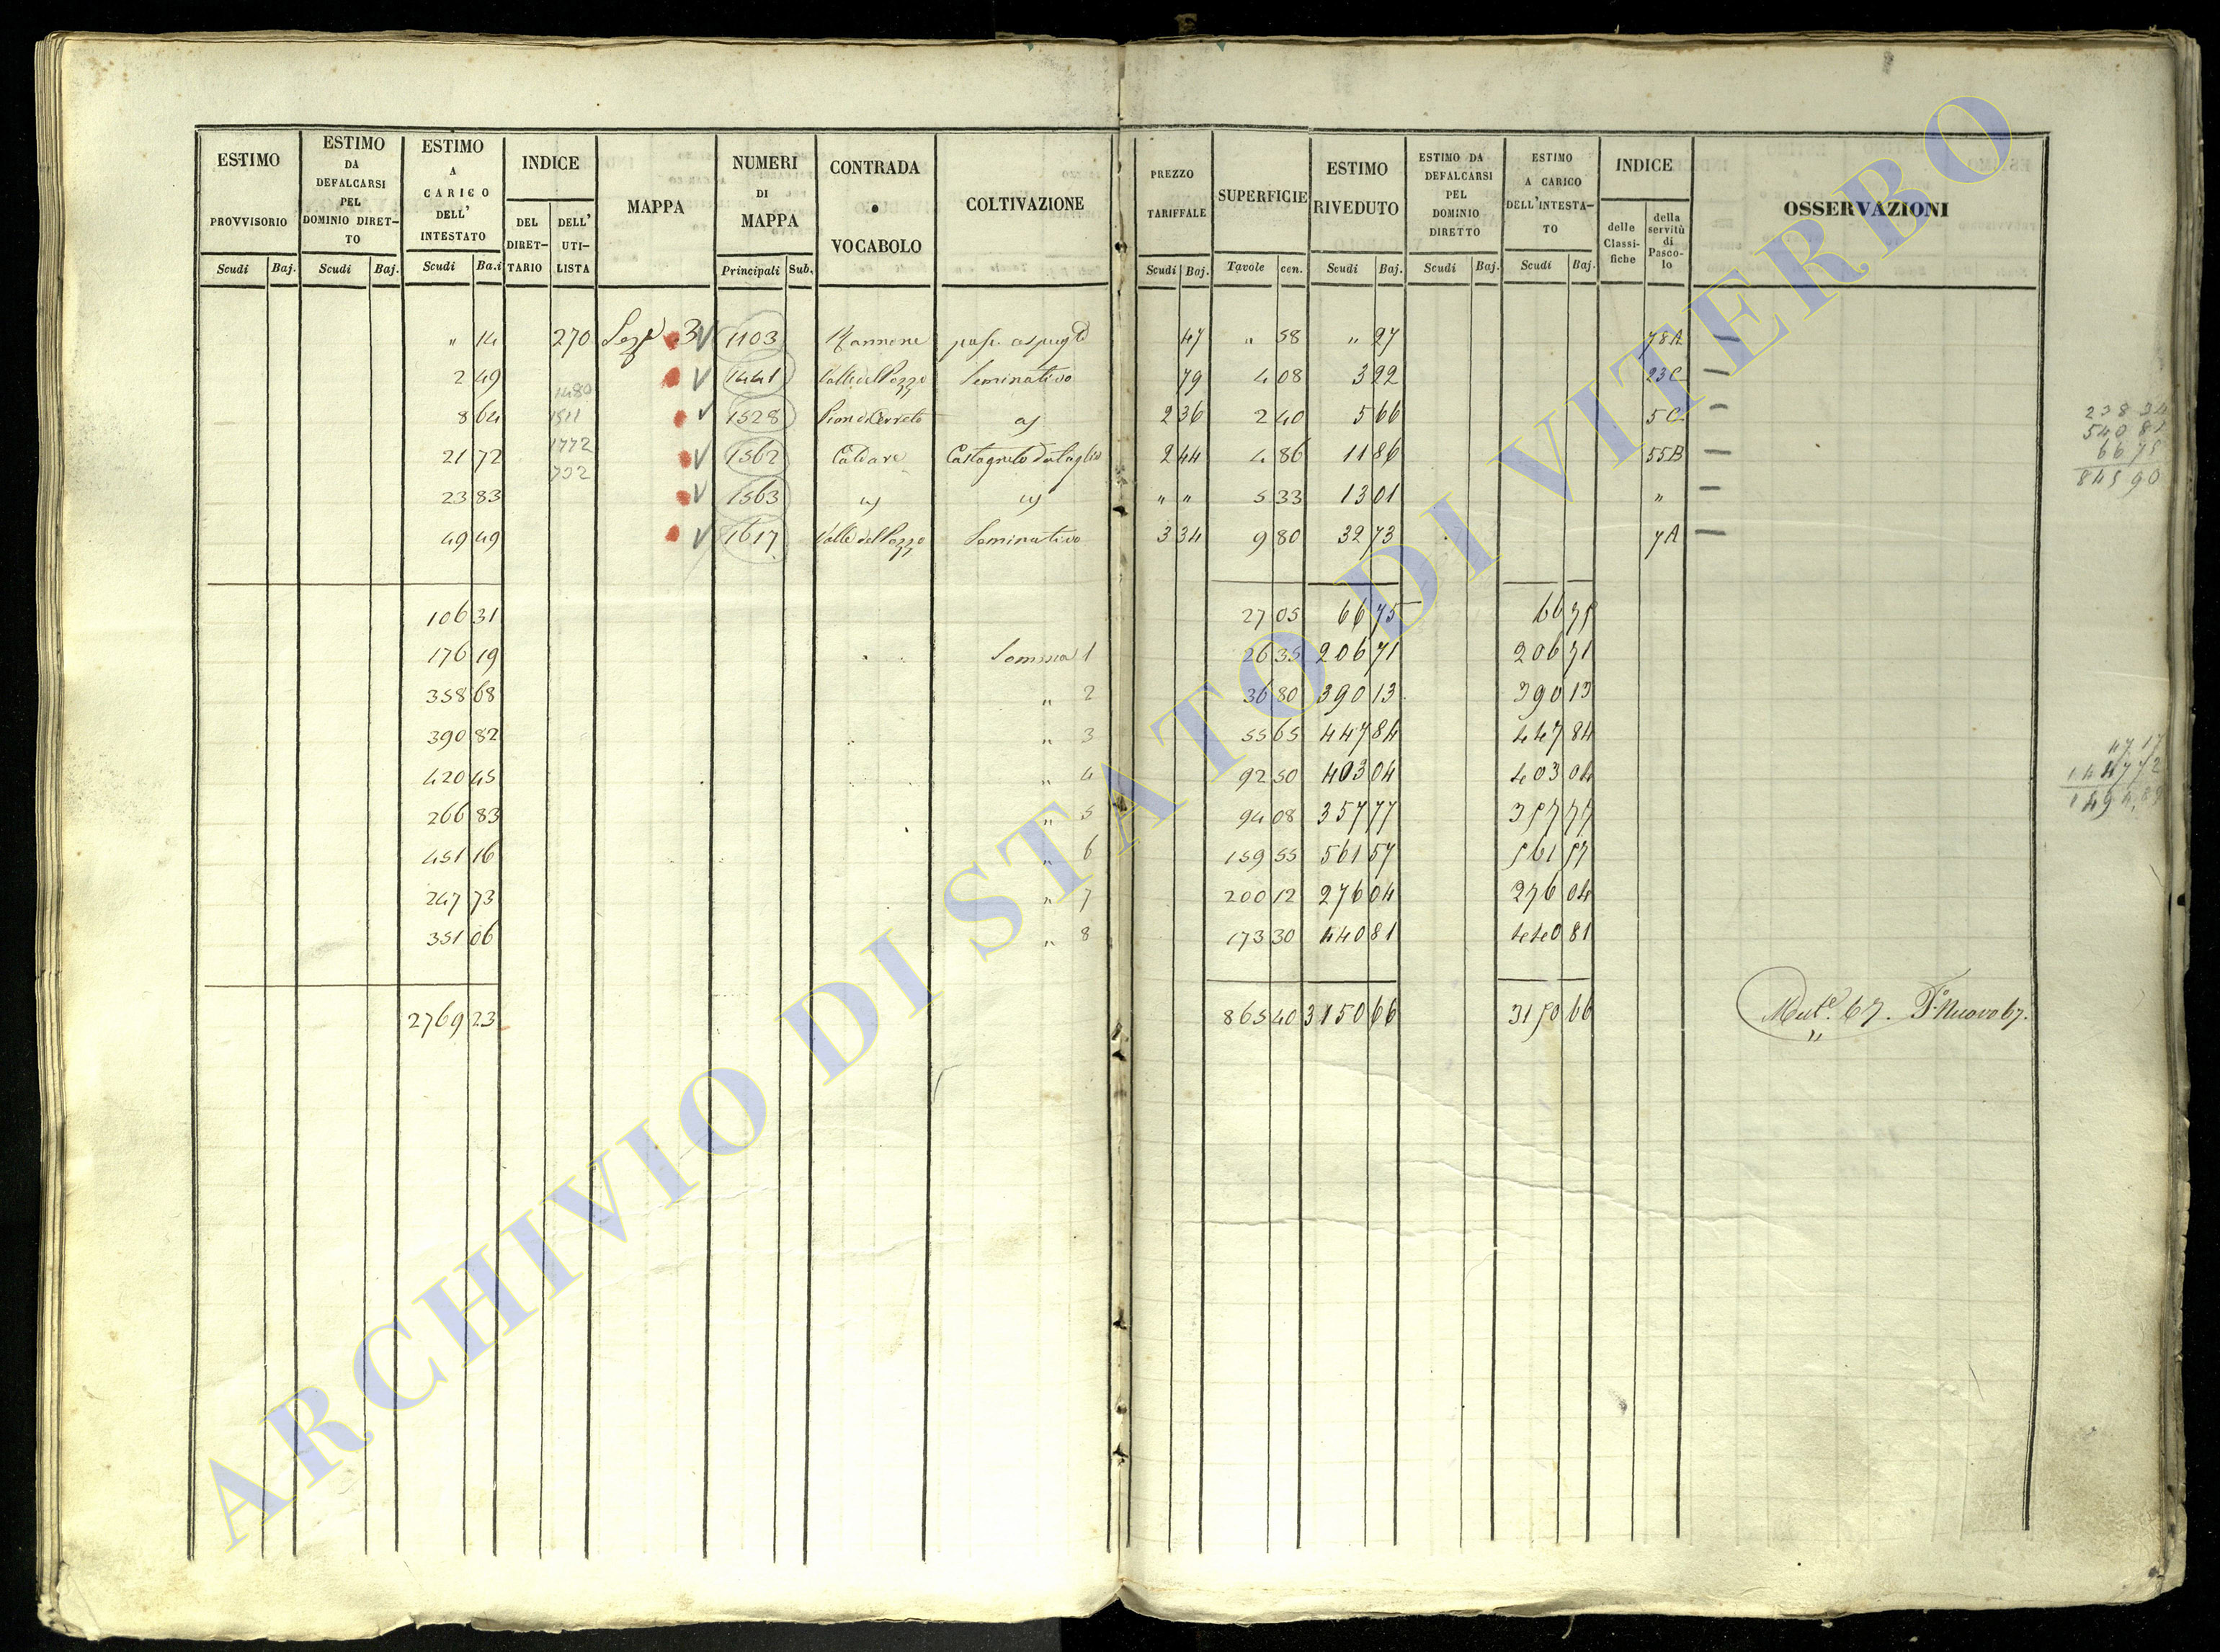 ESTIMO PROVVISORIO Scudi Baj.
ESTIMO DA DEFALCARSI PEL DOMINIO DIRET-TO Scudi Baj.
ESTIMO A CARICO DELL' INTESTATO Scudi Ba.i
INDICE DEL DIRET-TARIO DELL' UTI-LISTA
MAPPA
NUMERI DI MAPPA Principali Sub.
CONTRADA o VOCABOLO
COLTIVAZIONE
PREZZO TARIFFALE Scudi Baj.
SUPERFICIE Tavole cen.
ESTIMO RIVEDUTO Scudi Baj.
ESTIMO DA DEFALCARSI PEL DOMINIO DIRETTO Scudi Baj.
ESTIMO A CARICO DELL'INTESTA-TO Scudi Baj.
INDICE delle Classi-fiche della servitù di Pasco-lo
OSSERVAZIONI
" 14 270 3 1103 47 " 58 " 27 78A —
2 49 1441 Valle del Pozzo Seminativo 79 4 08 3 22 23C —
1480
8 64 1511 1528 Pian di Cerreto 2 36 2 40 5 66 5C —
1772
21 72 1562 Caldare Castagneto da taglio 2 44 4 86 11 86 55B —
732
23 83 1563 " " 5 33 13 01 " —
49 49 1617 Valle del Pozzo Seminativo 3 34 9 80 32 73 7A —
106 31 27 05 66 75 66 75
176 19 Somma 1 26 35 206 71 206 71
358 68 " 2 36 80 390 13 390 13
390 82 " 3 55 65 447 84 447 84
420 45 " 4 92 50 403 04 403 04
266 83 " 5 94 08 357 77 357 77
451 16 " 6 159 55 561 57 561 57
247 73 " 7 200 12 276 04 276 04
351 06 " 8 173 30 440 81 440 81
2769 23 865 40 3150 66 3150 66 67. Nuovo 67.
540 81
66 75
845 90
47 17
1447 72
1494,89
ARCHIVIO DI STATO DI VITERBO